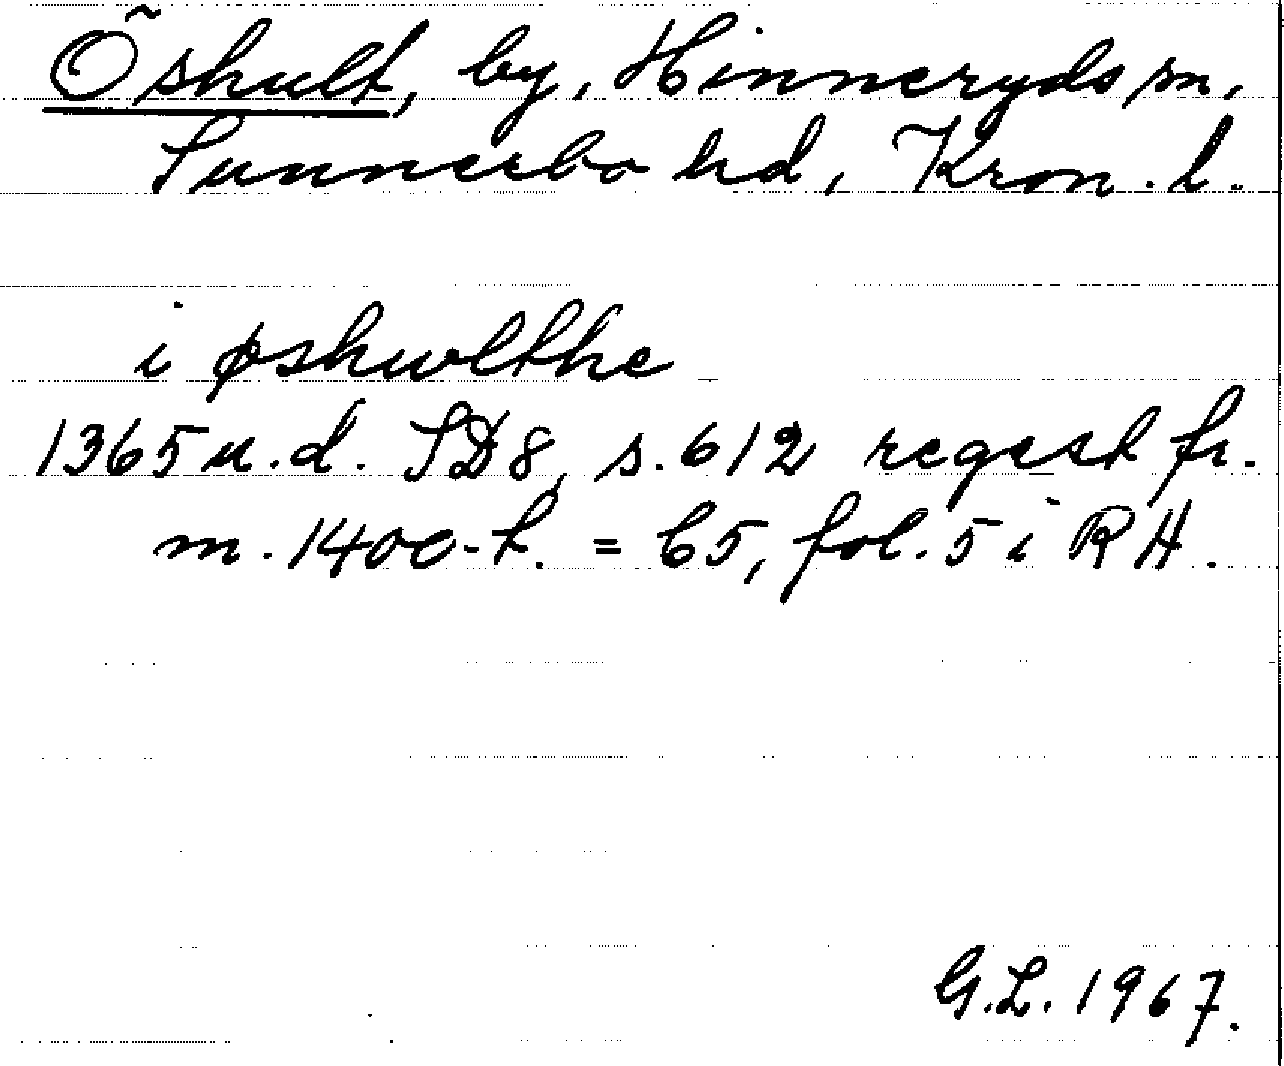 Öshult, by, Hinneryds sn,
Sunnerbo hd, Kron. l.
i øshwlthe
1365 u.d. SD8, s.612 regest fr.
m. 1400-t. = C5, fol. 5 i RA.
G.L. 1967.